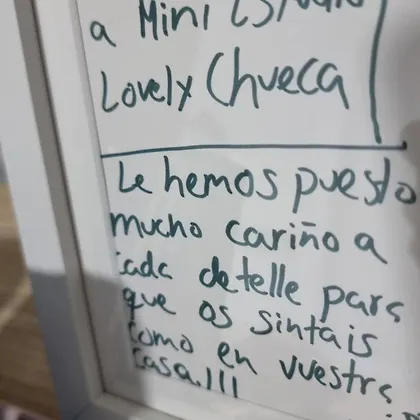 a Mini
Lovely Chueca
Le hemos puesto
mucho cariño a
cada detelle para
que os sintais
como en vuestra
casa.!!!